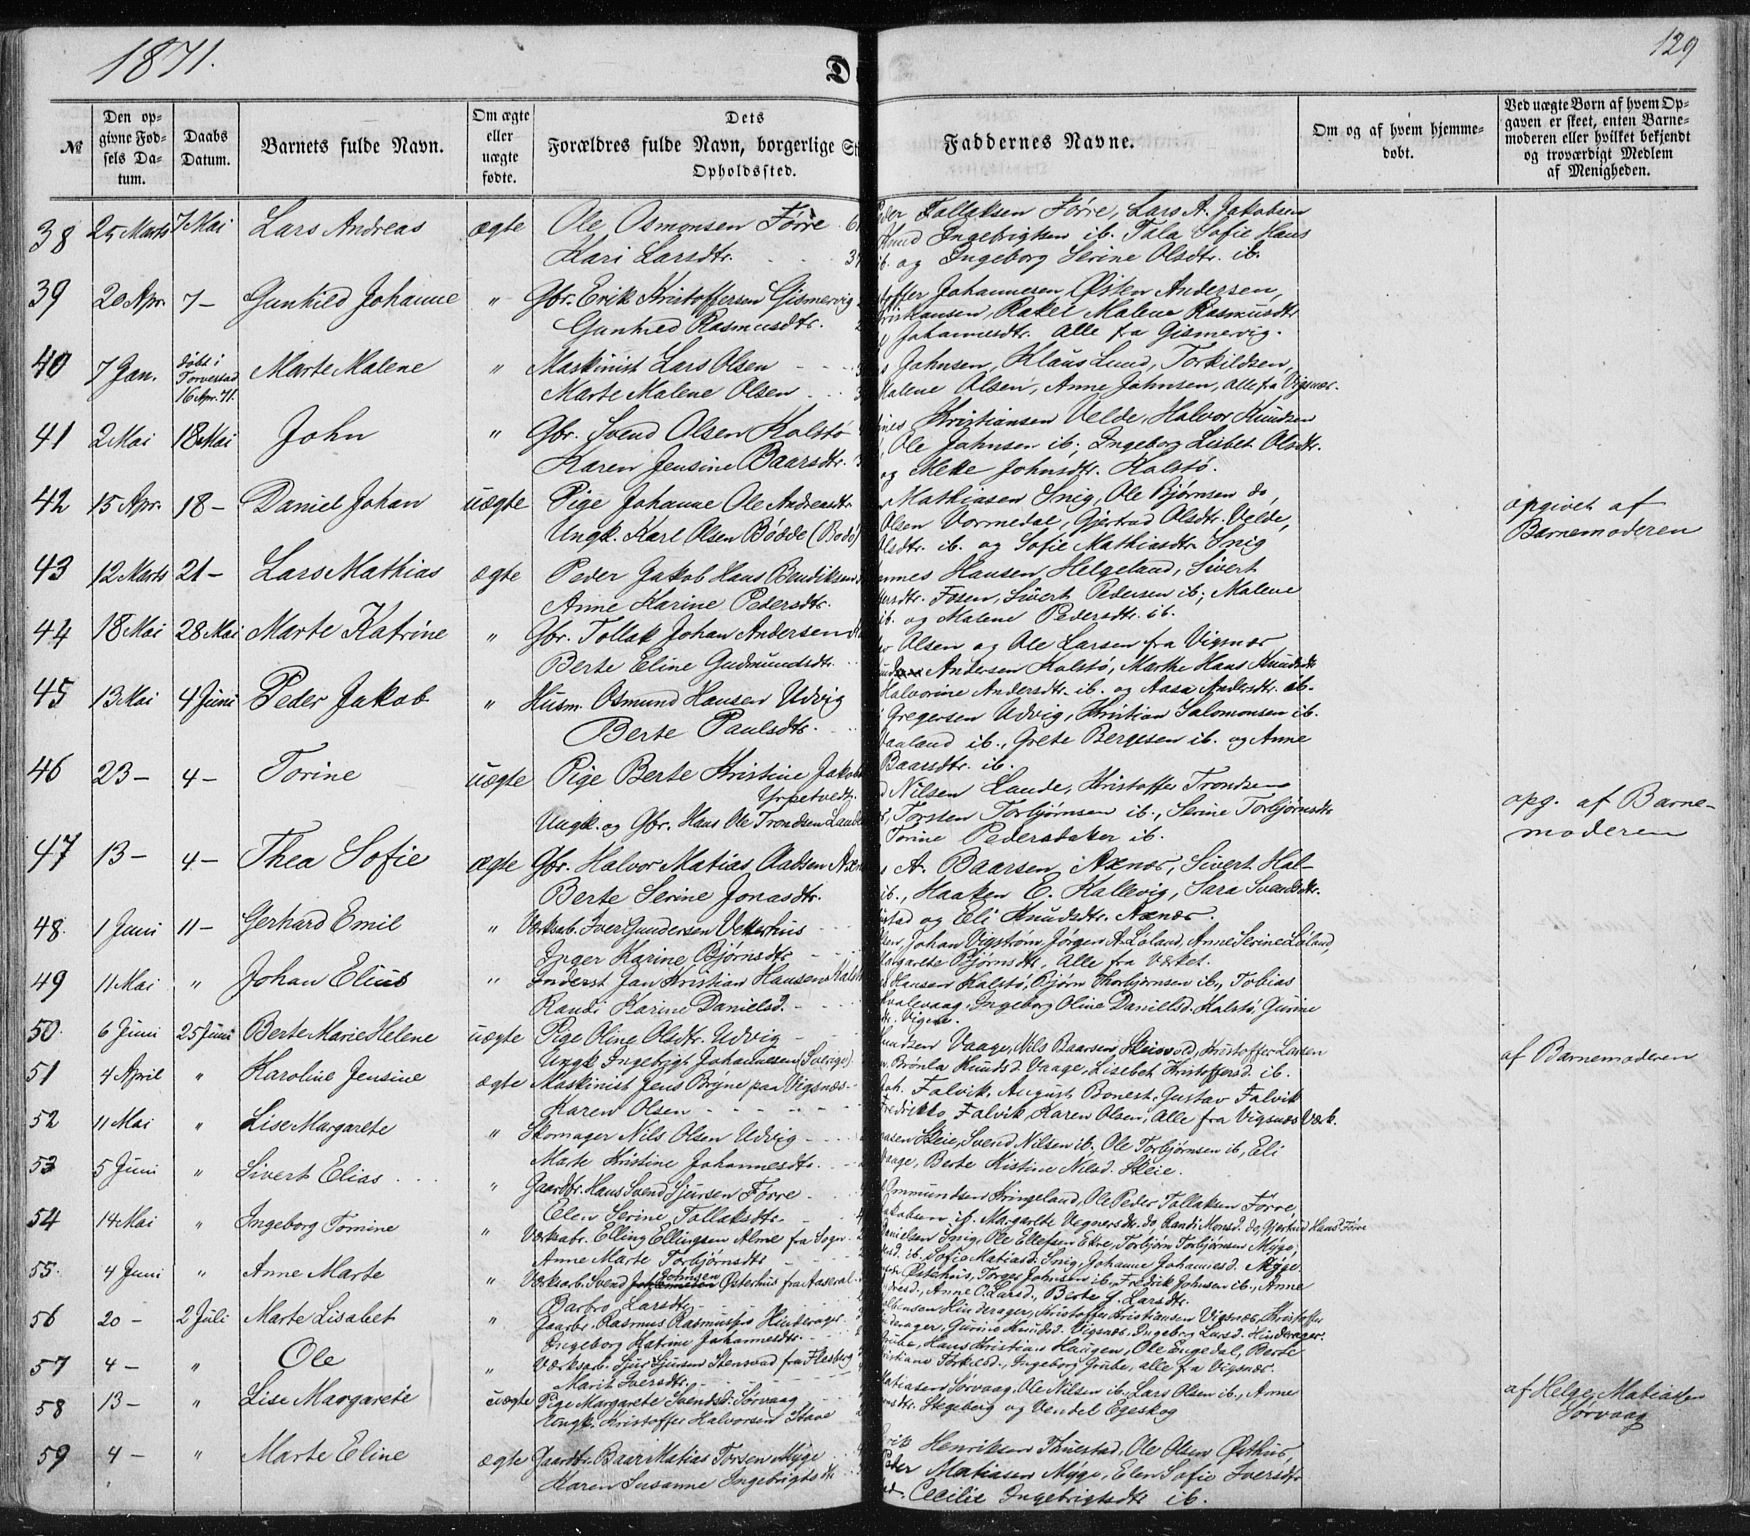 1871.
129
D
№
Den op-
givne Fød-
sels Da-
tum.
Daabs
Datum.
Barnets fulde Navn.
Om ægte
eller
uægte
fødte.
Dets
Forældres fulde Navn, borgerlige St
Opholdssted.
Faddernes Navne.
Om og af hvem hjemme-
døbt.
Ved uægte Børn af hvem Op-
gaven er skeet, enten Barne-
moderen eller hvilket bekjendt
og troværdigt Medlem
af Menigheden.
38 25 Marts 7 Mai Lars Andreas ægte Ole Osmonsen Førre
Kari Larsdtr.
Tollaksen Førre, Lars A. Jakobsen
Ingebrigtsen ib. Tala Sofie Hans
ib. og Ingeborg Serine Olsdtr. ib.
39 20 Apr. 7 – Gunhild Johanne " Gbr. Erik Kristoffersen Gismervig
Gunhild Rasmusdtr.
Johannesen, Østen Andersen,
Rakel Malene Rasmusdtr
Johannesdtr. Alle fra Gismervig.
40 7 Jan. døbt i
Torvestad
16 Apr. 71. Marte Malene " Maskinist Lars Olsen
Marte Malene Olsen
Johnsen, Klaus Lund, Torkildsen,
Malene Olsen, Anne Johnsen, alle fa Vigsnæs.
41 2 Mai 18 Mai John " Gbr. Svend Olsen Kalstø
Karen Jensine Baarsdtr.
Kristiansen Velde, Halvor Knudsen
Ole Johnsen ib; Ingeborg Lisbet Olsdtr.
og Mette Johnsdtr. Kalstø.
42 15 Apr. 18 – Daniel Johan uægte Pige Johanne Ole Andreasdtr
Ungk. Karl Olsen Bødde (Bodø)
Mathiasen Snig, Ole Bjørnsen do,
Olsen Vormedal, Gjertrud Olsdtr. Velde,
Olsdtr. ib. og Sofie Mathiasdtr Snig
opgivet af
Barnemoderen
43 12 Marts 21 – Lars Mathias ægte Peder Jakob Hans Bendiksen
Anne Karine Pedersdtr.
Hansen Helgeland, Sivert
Fosen, Sivert Pedersen ib; Malene
ib. og Malene Pedersdtr. ib.
44 18 Mai 28 Mai Marte Katrine " Gbr. Tollak Johan Andersen
Berte Eline Gudmundsdtr.
Olsen og Ole Larsen fra Vigsnæs
Andersen Kalstø, Marthe Hans Knudsdtr
Halvorine Andersdtr. ib. og Aasa Andersdtr. ib.
45 13 Mai 4 Juni Peder Jakob " Husm. Osmund Hansen Udvig
Berte Paulsdtr.
Gregersen Udvig, Kristian Salomonsen ib.
ib., Grete Bergesen ib. og Anne
Baarsdtr. ib.
46 23 – 4 – Torine uægte Pige Berte Kristine Jakobs
Ungk. og Gbr. Hans Ole Trondsen Lande
Nilsen Lande, Kristoffer Trondsen
Torsten Torbjørnsen ib., Serine Torbjørnsdtr
Torine Pedersdatter ib.
opg. af Barne-
moderen
47 13 – 4 – Thea Sofie ægte Gbr. Halvor Matias Aadsen
Berte Serine Jonasdtr.
A. Baarsen Axnæs, Sivert Hal-
ib., Haaken E. Kallevig, Sara Svendsdtr.
og Eli Knudsdtr. Axnæs.
48. 1 Juni 11 – Gerhard Emil " Værksab. Iver Gundersen Vetterhus
Inger Karine Bjørnsdtr
Johan Vigstrøm, Jørgen A. Løland, Anne Serine Løland,
Margarete Bjørnsdtr, Alle fra Værket.
49 11 Mai " Johan Elius " Inderst Jan Kristian Hansen
Randi Karine Danielsd.
Hansen Kalstø, Bjørn Thorbjørnsen ib., Tobias
Ingeborg Oline Danielsd. Kalstø, Gurine
50. 6 Juni 25 Juni Berte Marie Helene uægte Pige Oline Olsdtr. Udvig
Ungk. Ingebrigt Johannesen (Sverige)
Vaage, Nils Baarsen, Kristoffer Larsen
Brønla Knudsd Vaage, Lisebet Kristoffersd. ib.
af Barnemoderen
51 4 April " Karoline Jensine ægte Maskinist Jens Bryne paa Vigsnæs
Karen Olsen
Falvik, August Bonest, Gustav Falvik
Fredrikke Falvik, Karen Olsen, Alle fra Vigsnæs Værk.
52 11 Mai " Lise Margarete " Skomager Nils Olsen Udvig
Marte Kristine Johannesdtr.
Skeie, Svend Nilsen ib., Ole Torbjørnsen ib, Eli
Vaage, Berte Kistine Nilsd. Skeie.
53 5 Juni " Sivert Elias " Gaardbr. Hans Svend Sjursen Førre
Elen Serine Tollaksdtr.
Ommundsen Kringeland, Ole Peder Tollaksen Førre
ib. Margrete Vegnersdtr. do, Randi Monsd. do, Gjertrud Hansd. Førre
54 14 Mai " Ingeborg Tomine " Værksabr. Elling Ellingsen Alme fra Sogn
Anne Marte Torbjørnsdtr
Danielsen Snig, Ole Ellefsen Ekre, Torbjørn Torbjørnsen Myge,
ib., Sofie Matiasd. Snig, Johanne Johannesd. Myge
55. 4 Juni " Anne Marte " Værksarb. Svend Johnsen Østerhus fra Aaseral
Barbro Larsdtr
Østehus, Torger Johnsen ib., Fredrik Johnsen ib., Anne
Anne O. Larsd., Berte G. Larsdtr.
56 20 – 2 Juli Marte Lisabet " Gaarbr. Rasmus Rasmussen Hinderager
Ingeborg Katrine Johannesdtr.
Hinderager, Kristoffer Kristiansen Vigsnæs, Kristoffer
Gurine Knudsd. Vigsnæs, Ingeborg Larsd. Hinderager.
57 4 – " Ole " Værksab. Sjur Sjursen Stensrud fra Flesberg
Marit Iversdtr.
Grube, Hans Kristian Haugen, Ole Engedal, Berte
Torkelsd., Ingeborg Grube, alle fa Vigsnæs.
58 13 – " Lise Margarete uægte Pige Margarete Svendsd. Sørvaag
Ungk. Kristoffer Helvorsen Stave
Matiasen Sørvaag, Ole Nilsen ib., Lars Olsen ib., Anne
Stegeberg og Vendel Egeskog
af Helge Matiassen
Sørvaag
59 4 – " Marte Eline ægte Gaardbr. Baar Matias Torsen Myge
Karen Susanne Ingebrigtsdtr
Henriksen Tuestad, Ole Olsen Østhus
Peder Matiasen Myge, Elen Sofie Iversdtr
Cecilie Ingebrigtsdtr ib.